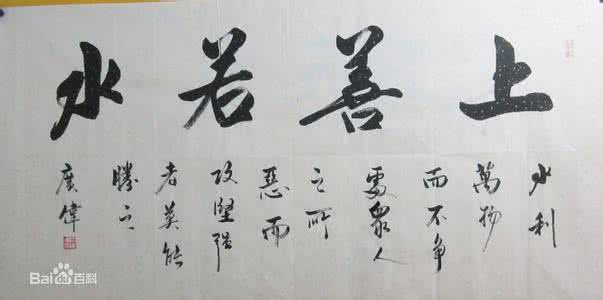 上善若水
水利
萬物
而不争
處衆人
之所
惡而
攻堅强
者莫能
勝之
廣偉
Bai百科